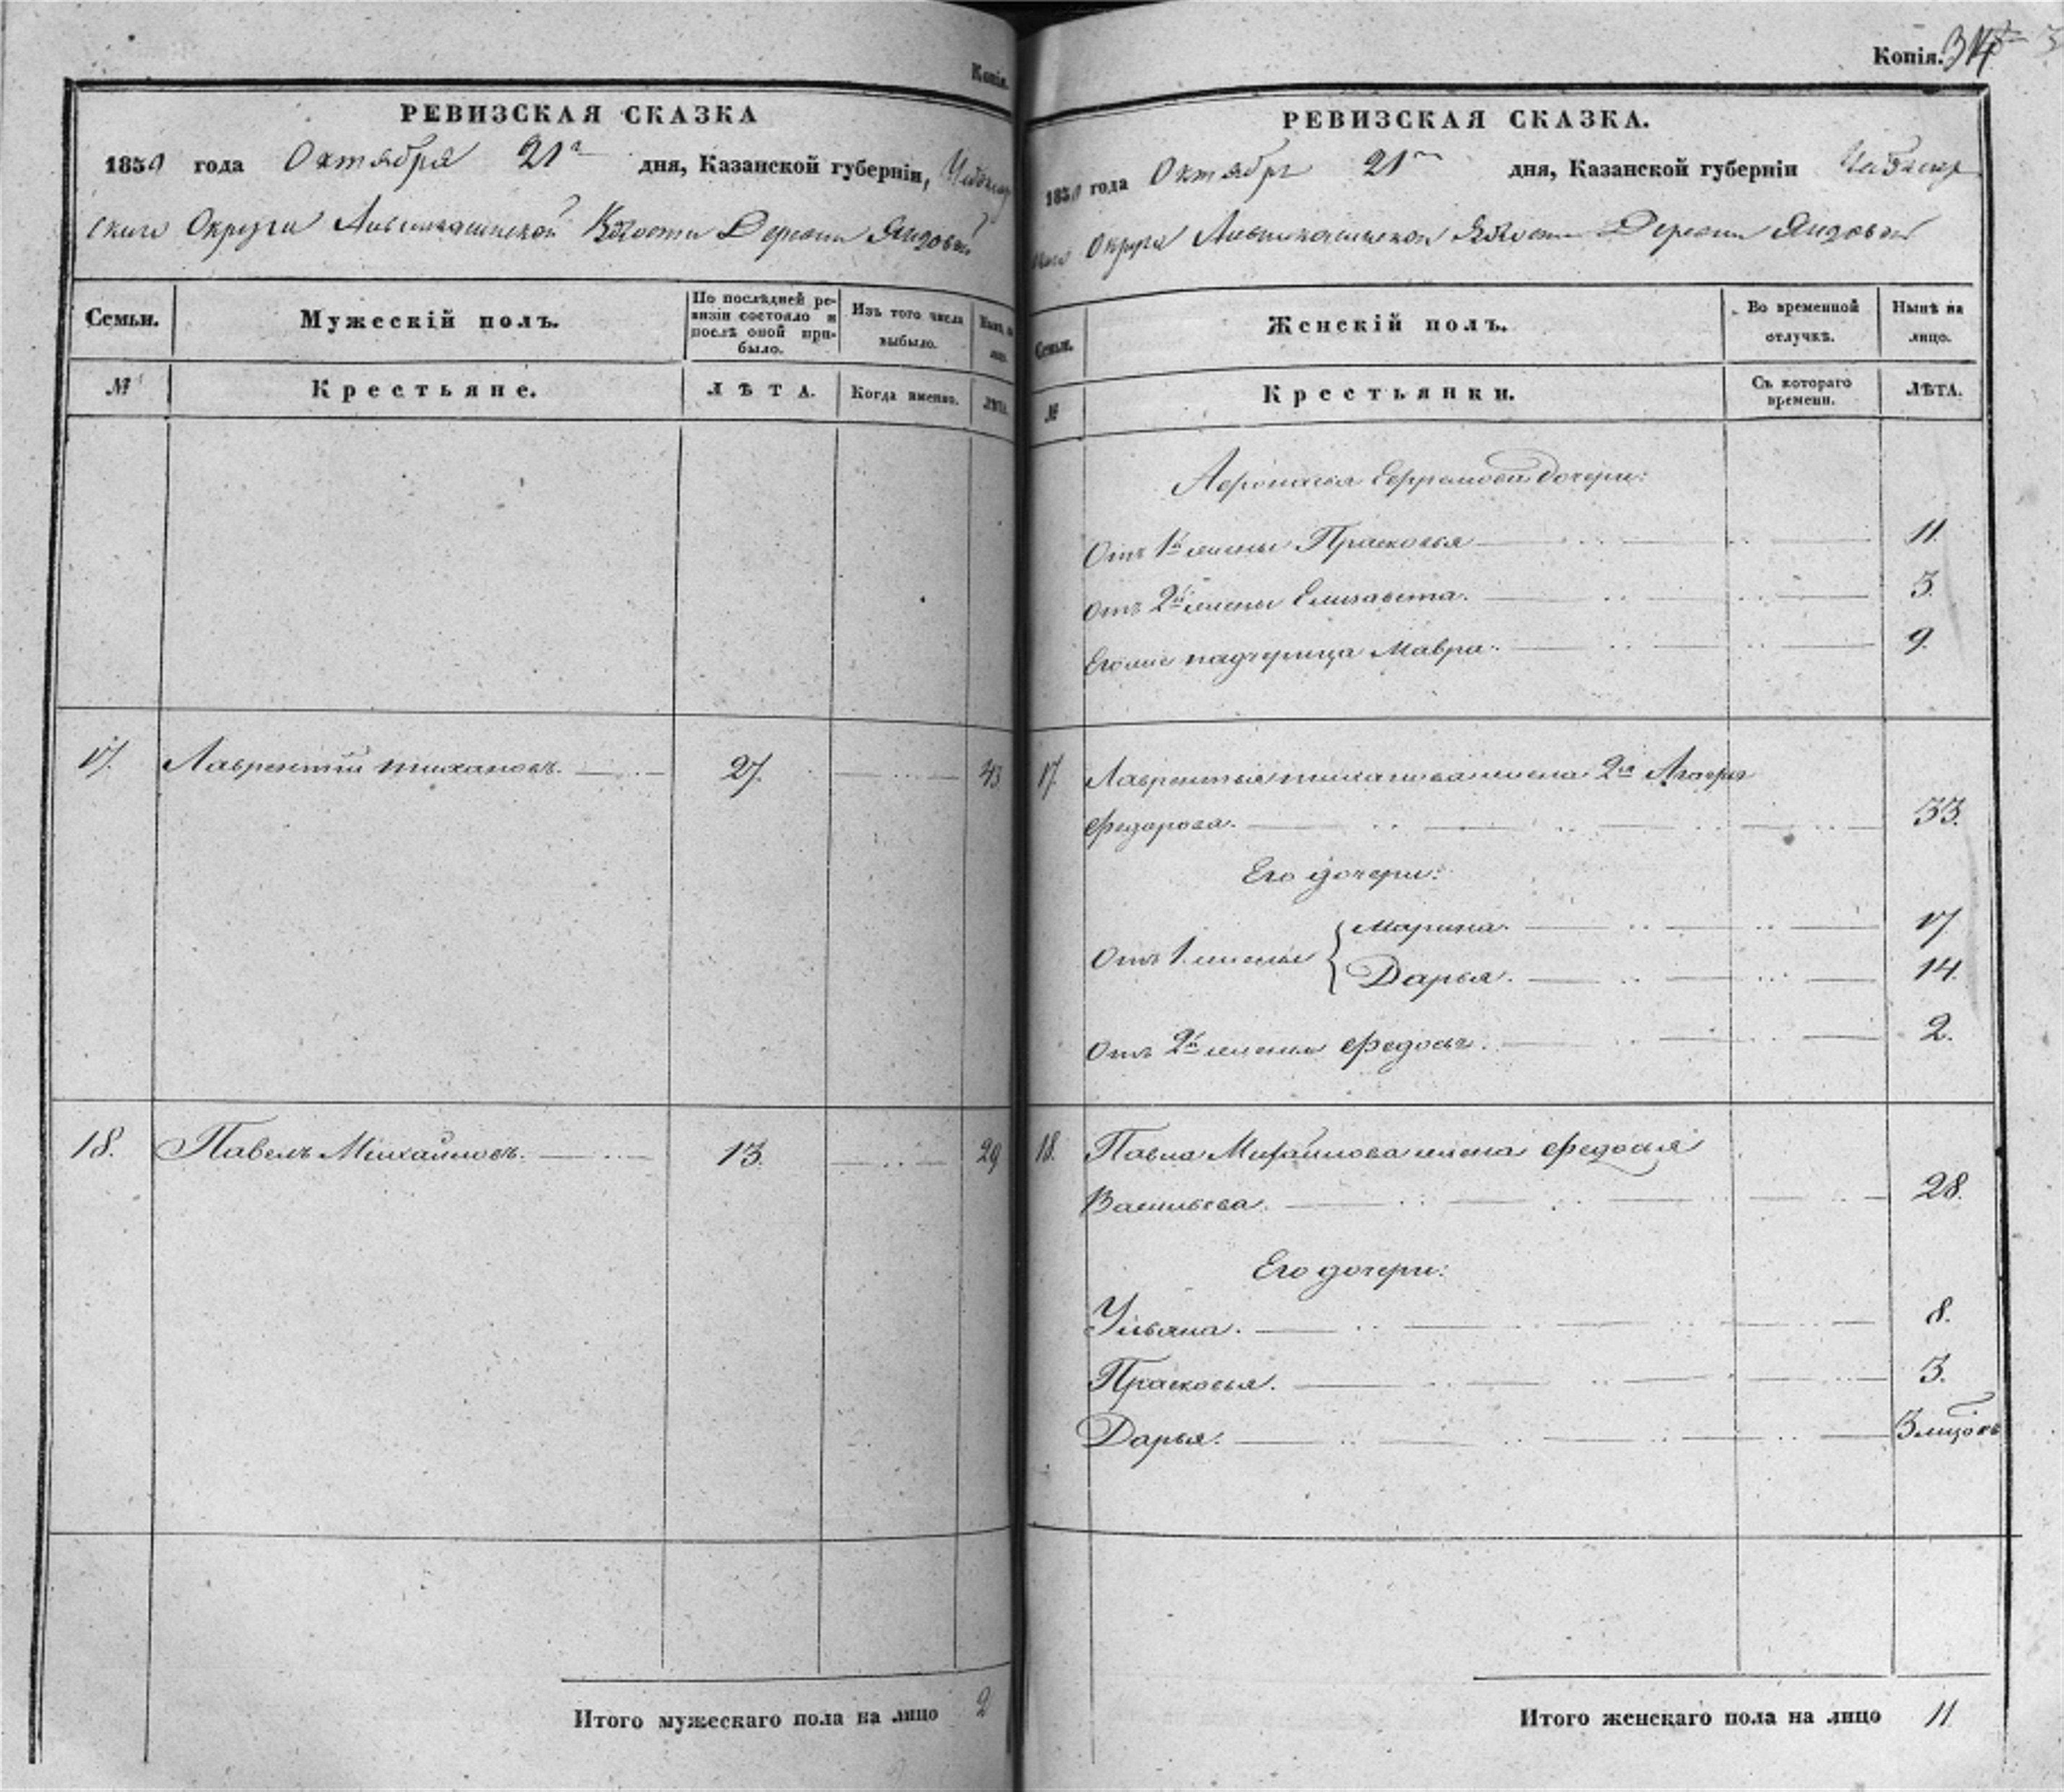 Копія.
РЕВИЗСКАЯ СКАЗКА
1850 года Октября 21го дня, Казанской губерніи, Чебоксар
скаго Округа Волости Деревни Яндовой
Семьи. Мужескій полъ. По послѣдней ре-
визіи состояло и
послѣ оной при-
было. Изъ того числа
выбыло. Нынѣ на
лицо.
№ Крестьяне. ЛѢТА. Когда именно. ЛѢТА.
17. Лаврентій Тихановъ. 27. 43
18. Павелъ Михайловъ. 13. 29
Итого мужескаго пола на лицо 2
Копія.
РЕВИЗСКАЯ СКАЗКА.
1850 года Октября 21го дня, Казанской губерніи Чебоксар
скаго Округа Волости Деревни Яндовой
Семьи. Женскій полъ. Во временной
отлучкѣ. Нынѣ на
лицо.
№ Крестьянки. Съ котораго
времени. ЛѢТА.
Ефремова дочери:
Отъ 1й жены Прасковья 11.
Отъ 2й жены Елизавета. 3.
Егоже падчерица Мавра. 9.
17. Лаврентья Тиханова жена 2я Агафья
Федорова. 33.
Его дочери:
Отъ 1 жены Марина. 17
Дарья. 14.
Отъ 2й жены Федосья. 2.
18. Павла Михайлова жена Федосья
Васильева. 28.
Его дочери:
Ульяна. 8.
Прасковья. 3.
Дарья. 3 мѣсяцовъ
Итого женскаго пола на лицо 11